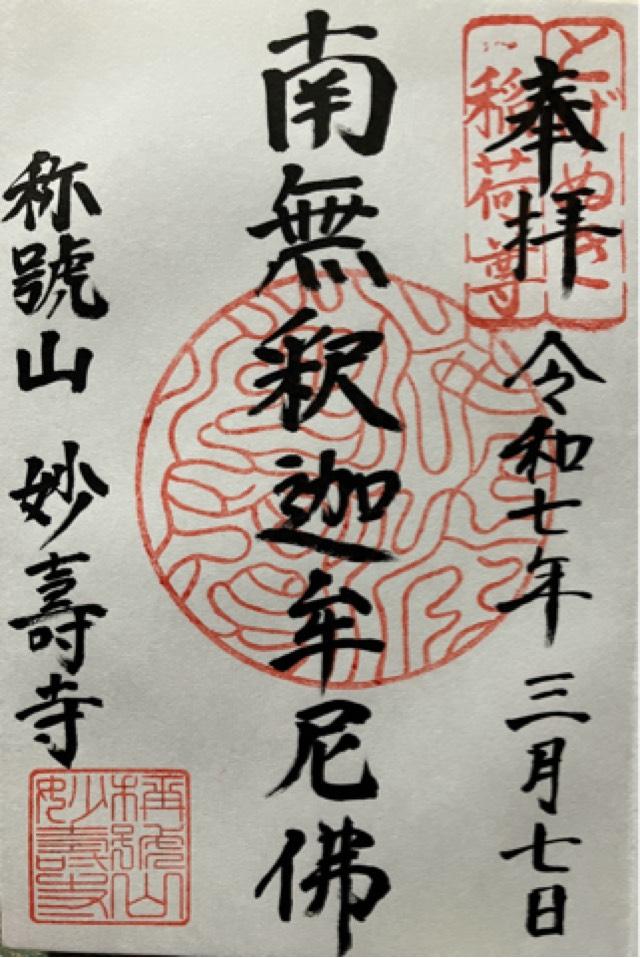 とげぬき
稲荷尊
奉拝
令和七年三月七日
南無釈迦牟尼佛
称號山 妙壽寺
稱號山
妙壽寺